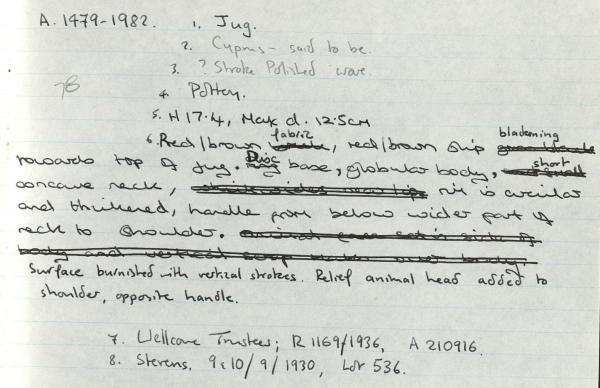 A. 1479-1982. 1. Jug.
2. Cyprus - said to be.
3. ? Stroke Polished ware.
78
4. Pottery.
5. H 17.4, Max d. 12.5cm
6. Red/brown fabric, red/brown slip blackening
towards top of jug. Disc base, globular body, short
concave neck, rim is circular
and thickened, handle from below wider part of
neck to shoulder.
Surface burnished with vertical strokes. Relief animal head added to
shoulder, opposite handle.
7. Wellcome Trustees; R 1169/1936, A 210916.
8. Stevens, 9 & 10/9/1930, Lot 536.